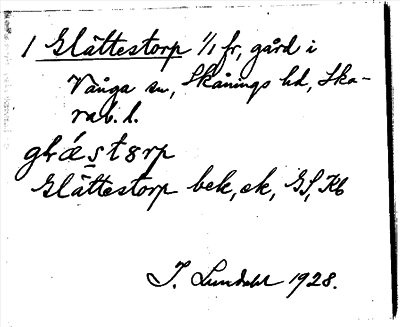 1 Glättestorp 1/1 fr, gård i
Vånga sn, Skånings hd, Ska-
rab. l.
glǽstørp
Glättestorp bek, ek, GS, Kb
J. Lundahl 1928.